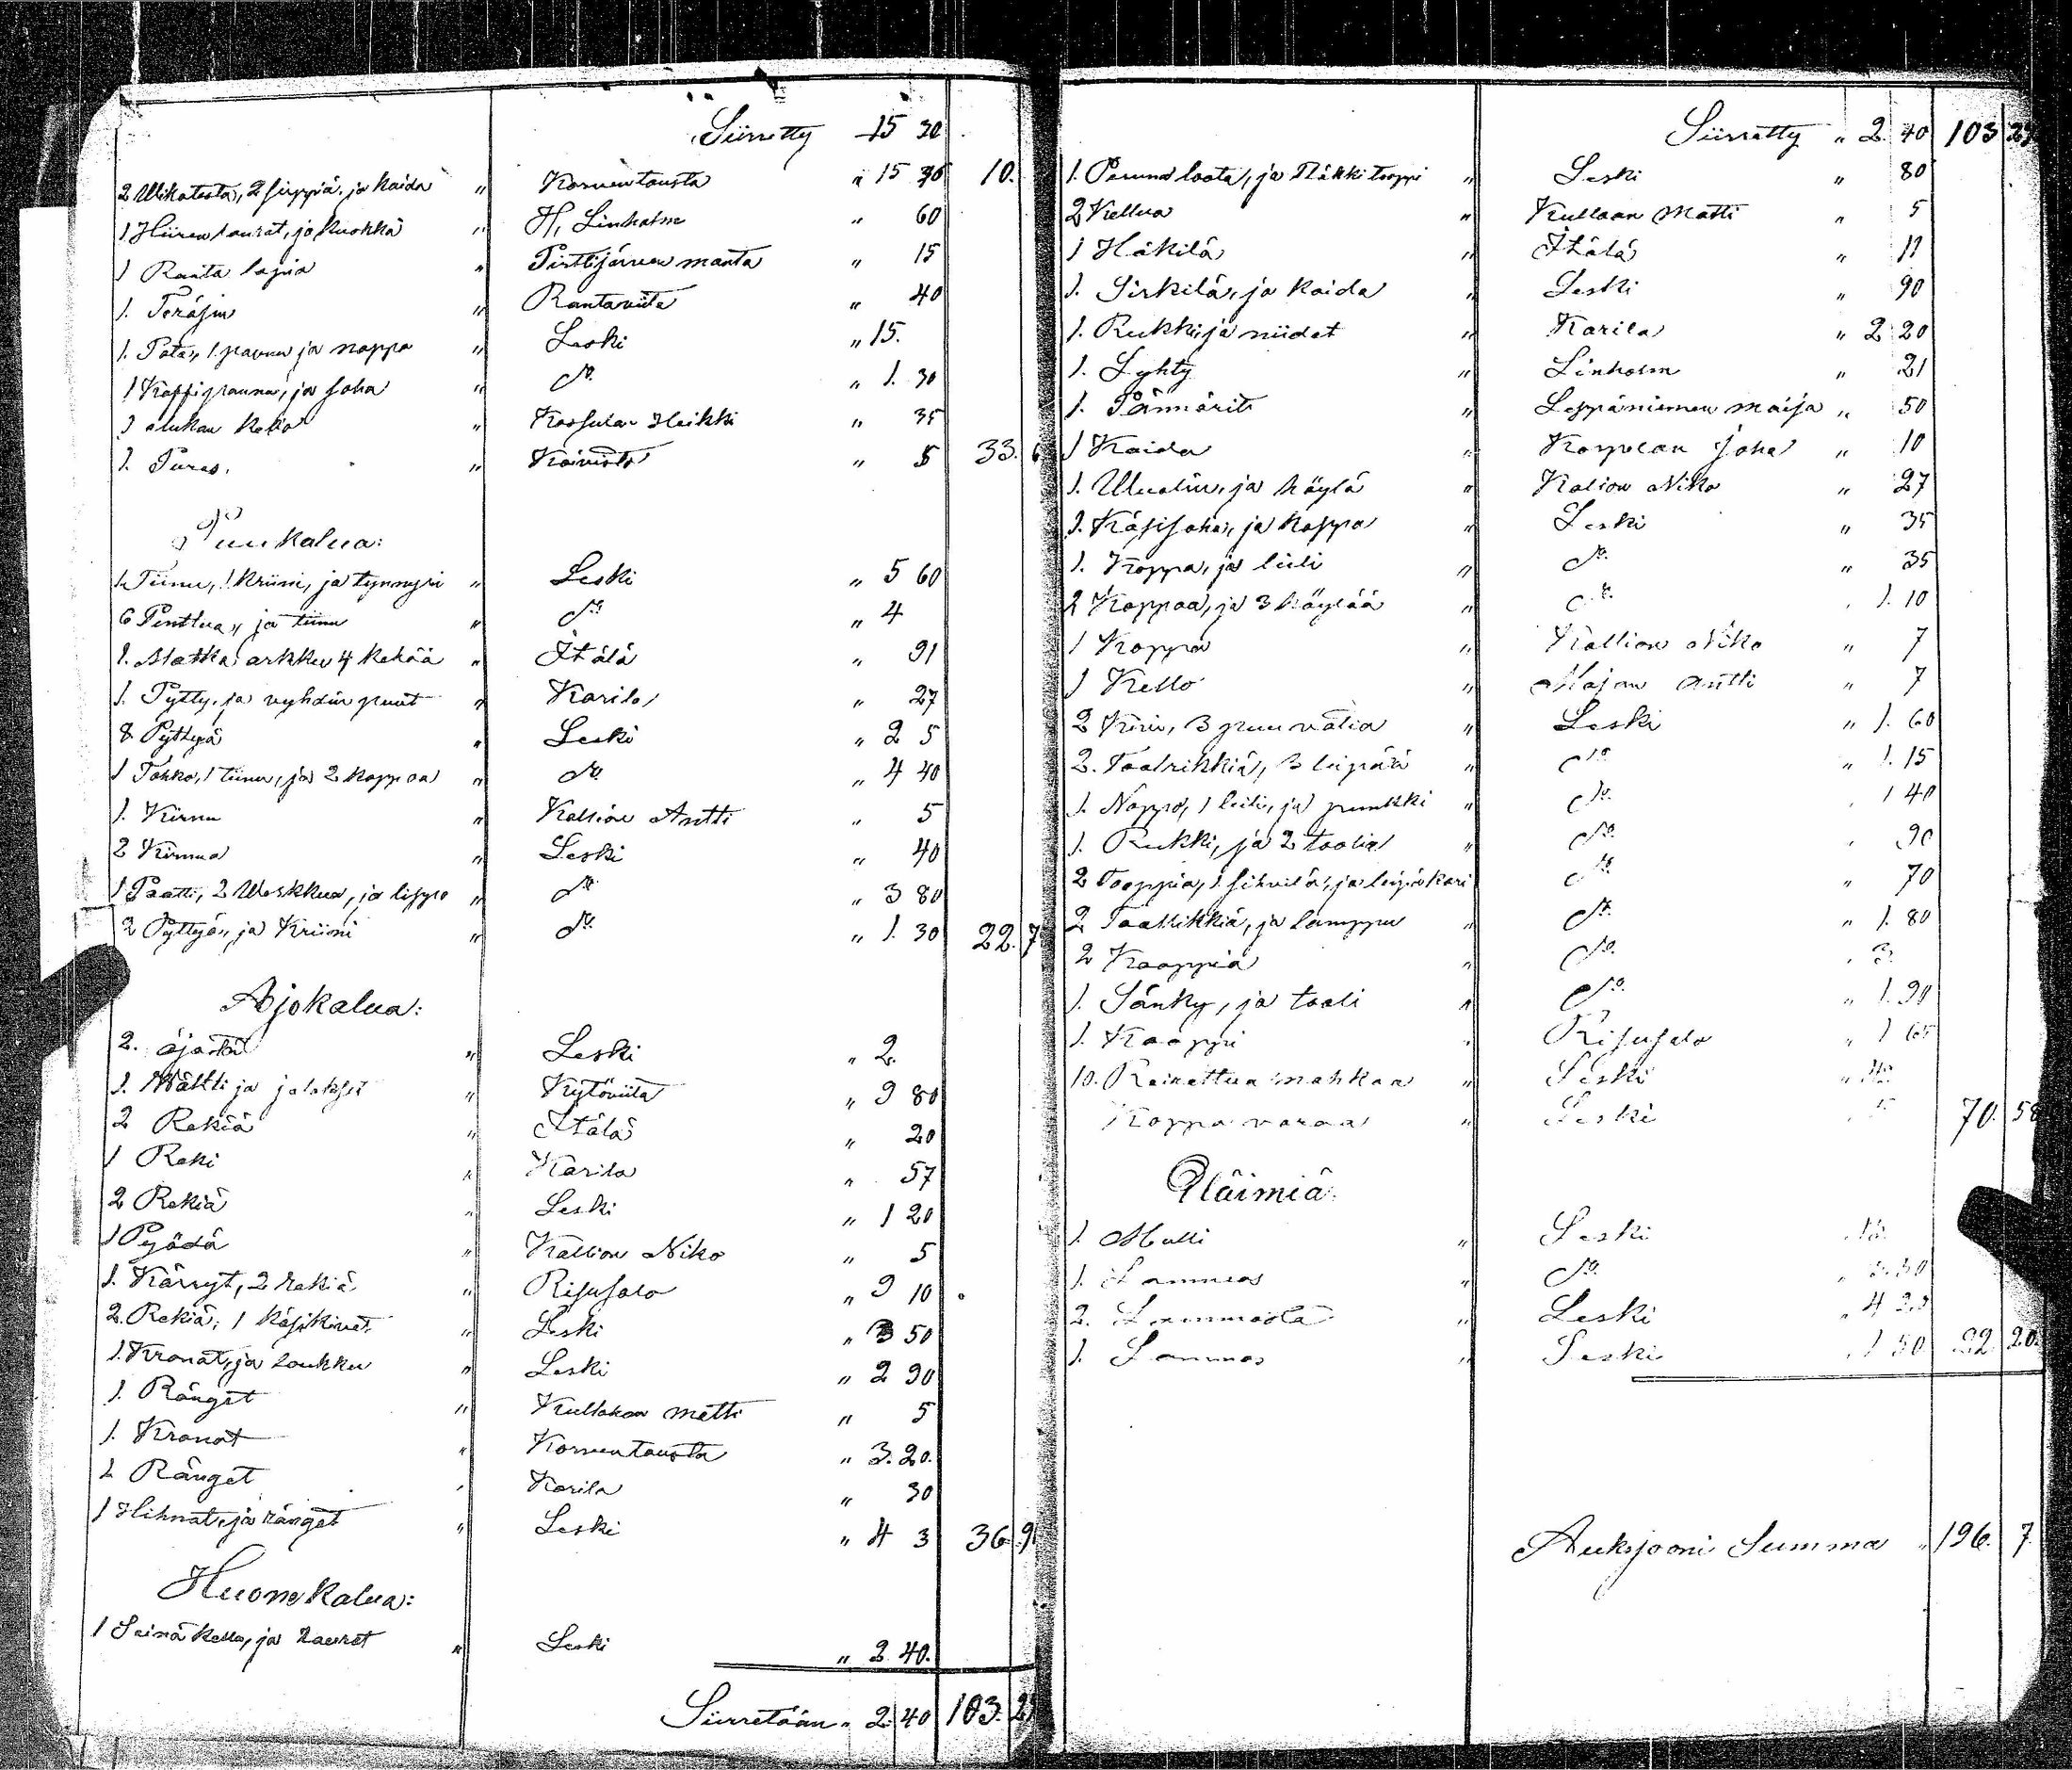 Siirretty 15 30
2 Wikatesta, 2 sirppiä, ja kaida " Korventausta " 15 10.
1 Hiiren raurat, ja kuokka " H, Linholm " 60
1 Rauta lapia " Pirttijärven manta " 15
1. Teräsin " Rantaviita " 40
1. Pata, 1 pannu ja nappo " Leski " 15.
1 Kaffipannu, ja saha " do " 1. 30
1 " Heikki " 35
1. Puras. " Koivisto " 5 33.
Puukalua:
1. Tiinu, 1 kriini, ja tynnyri " Leski " 5 60
6 Penttua, ja tiinu " do " 4
1. Matka arkku 4 kehää " Itälä " 91
1. Pytty, ja vyhdin puut " Karila " 27
8 Pyttyä " Leski " 2 5
1 Tahko, 1 tiinu, ja 2 koppaa " do " 4 40
1. Kirnu " Kallion Antti " 5
2 Kirnua " Leski " 40
1 Paatti, 2 Weskkua, ja lippo " do " 3 80
2 Pyttyä, ja Kriini " do " 1. 30 22. 7
Ajokalua:
2. äjestä " Leski " 2.
1. Wältti ja jalakset " Kytöviita " 9 80
2 Rekiä " Itälä " 20
1 Reki " Karila " 57
2 Rekiä " Leski " 1 20
1 Pyödä " Kallion Niko " 5
1. Kärryt, 2 rekiä " Risusalo " 9 10
2. Rekiä, 1 käsikivet " Leski " 3 50
1. Kranat, ja loukku " Leski " 2 90
1. Ränget " Matti " 5
1. Kranat " Korventausta " 3. 20.
1 Ränget " Karila " 30
1 Hihnat, ja ränget " Leski " 4 3 36. 91
Huonekalua:
1 Seinä kello, ja raurat " Leski " 2 40.
Siirretään " 2 40 103. 21
Siirretty " 2. 40 103 21
1. Perunalaota, ja Läkkitooppi " Leski " 80
2 Kellua " Kullaan Matti " 5
1 Häkilä " Itälä " 11
1. Sirkilä, ja kaida " Leski " 90
1. Rukki, ja niidet " Karila " 2 20
1. Lyhty " Linholm " 21
1. Pännärit " Leppäniemen Maija " 50
1 Kaida " Korpelan Juha " 10
1. Wuolin, ja höylä " Kalion Niko " 27
1. Käsisaha, ja koppa " Leski " 35
1. Koppa, ja leili " do " 35
2 Koppaa, ja 3 höylää " do " 1. 10
1 Koppa " Kallion Niko " 7
1 Kello " Majan Antti " 7
2 Kiru, 3 puu vatia " Leski " 1. 60
2. Taalrikkiä, 3 leipää " do " 1. 15
1. Nappo, 1 leili, ja punkki " do " 1 40
1. Rukki, ja 2 toolia " do " 90
2 Tooppia, 1 sihvilä, ja leipäkori " do " 70
2 Taallikkiä, ja lamppu " do " 1. 80
2 Kaappia " do " 3
1. Sänky, ja tooli " do " 1. 90
1. Kaappi " Risusalo " 1 65
10. Raivattua nahkaa " Leski "
Koppa varaa " Leski 70. 58
Eläimiä:
1. Mulli " Leski
1. Lammas " do
2. Lammasta " Leski " 4
1. Lammas " Leski " 1 50 22 20.
Auksjooni Summa " 196. 7